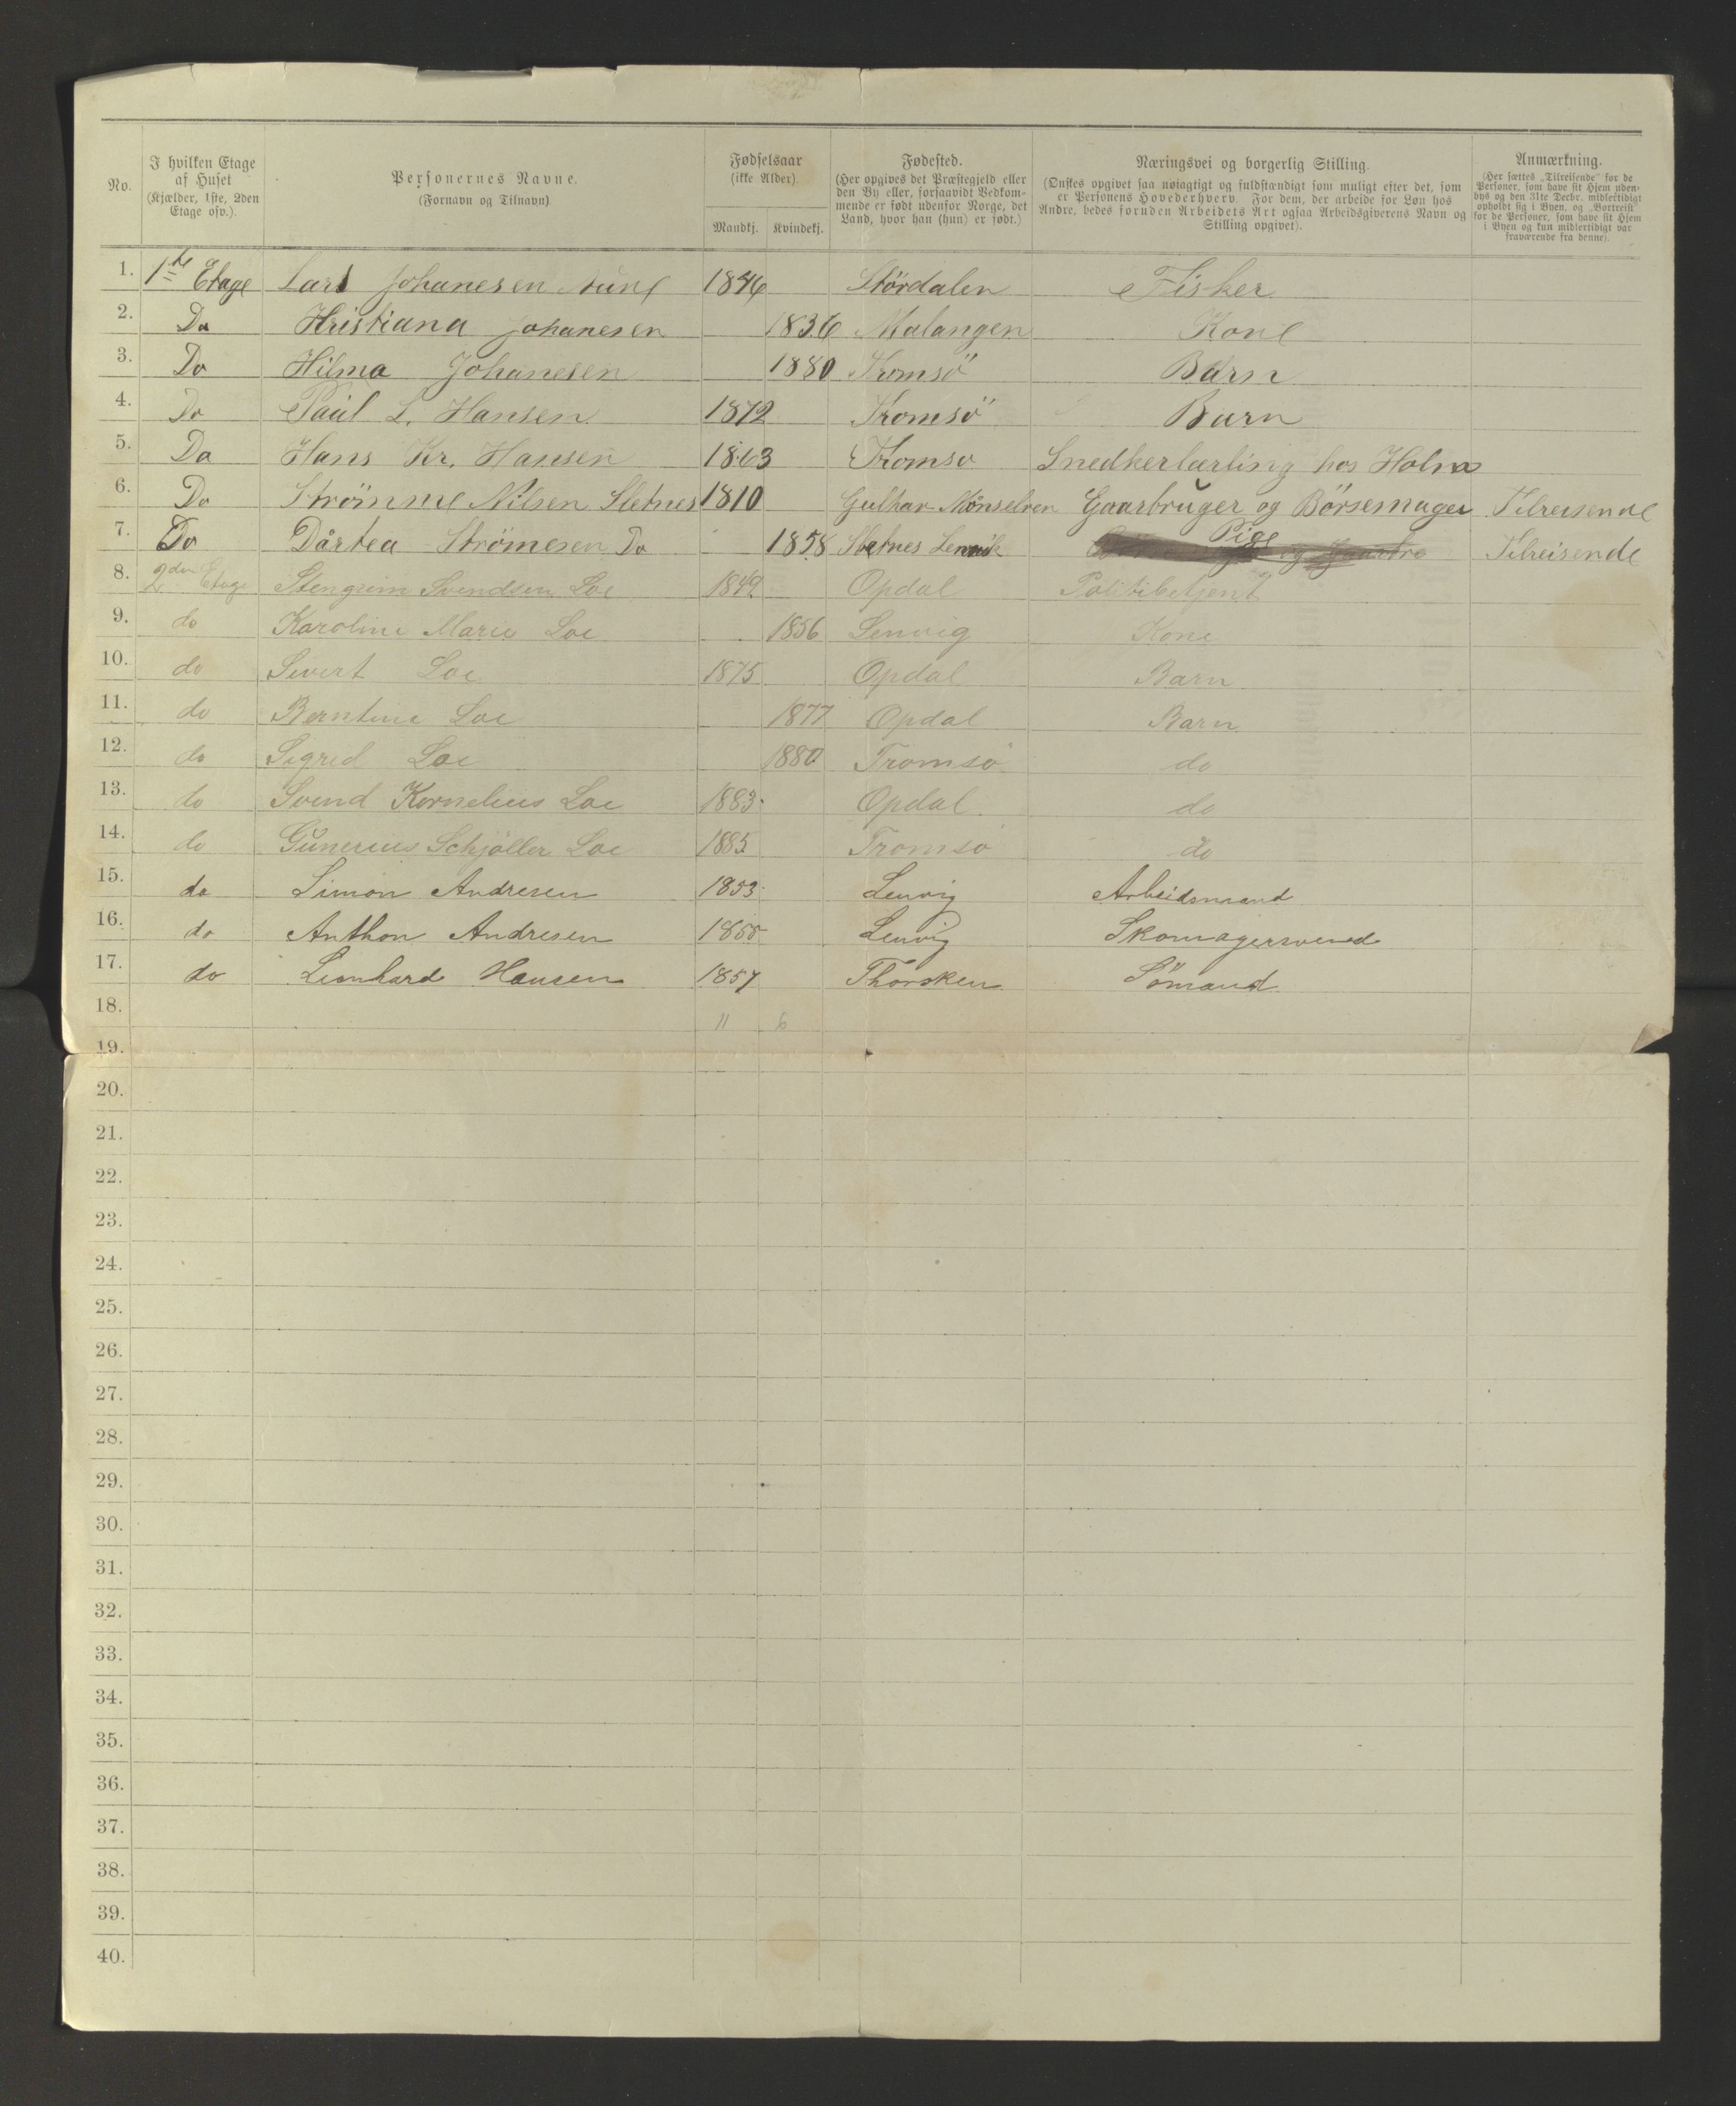 No.
I hvilken Etage
af Huset
(Kjælder, 1ste, 2den
Etage osv.).
Personernes Navne.
(Fornavn og Tilnavn)
Fødselsaar
(ikke Alder).
Mandkj. Kvindekj.
Fødested.
(Her opgives det Præstegjeld eller
den By eller, forsaavidt Vedkom-
mende er født udenfor Norge, det
Land, hvor han (hun) er født.)
Næringsvei og borgerlig Stilling.
(Ønskes opgivet saa nøiagtigt og fuldstændigt som muligt efter det, som
er Personens Hovederhverv. For dem, der arbeide for Løn hos
Andre, bedes foruden Arbeidets Art ogsaa Arbeidsgiverens Navn og
Stilling opgivet).
Anmærkning.
(Her sættes „Tilreisende" for de
Personer, som have sit Hjem uden-
bys og den 31te Decbr. midlertidigt
opholdt sig i Byen, og „Bortreist"
for de Personer, som have sit Hjem
i Byen og kun midlertidigt var
fraværende fra denne).
1. 1ste Etage Lars Johanesen Aune 1846 Stördalen Fisker
2. Do Kristiana Johanesen 1836 Malangen Kone
3. Do Hilma Johanesen 1880 Tromsö Barn
4. Do Paul L. Hansen 1872 Tromsö Barn
5. Do Hans Kr. Hansen 1863 Tromsø Snedkerlærling hos Holm
6. Do Strömme Nilsen Sletnes 1810 Maanselven Gaarbruger og Börsemager Tilreisende
7. Do Dårtea Strömesen Do 1858 Sletnes Lenvik Pige Tilreisende
8. 2den Etage Stengrim Svendsen Loe 1849 Opdal Politibetjent
9. do Karoline Marie Loe 1856 Lenvig Kone
10. do Sivert Loe 1875 Opdal Barn
11. do Berntine Loe 1877 Opdal Barn
12. do Sigrid Loe 1880 Tromsö do
13. do Svend Kornelius Loe 1883 Opdal do
14. do Gunerius Schjöller Loe 1885 Tromsö do
15. do Simon Andresen 1853 Lenvig Arbeidsmand
16. do Anthon Andresen 1855 Lenvig Skomagersvend
17. do Leonhard Hansen 1857 Thorsken Sömand
18. 11 6
19.
20.
21.
22.
23.
24.
25.
26.
27.
28.
29.
30.
31.
32.
33.
34.
35.
36.
37.
38.
39.
40.